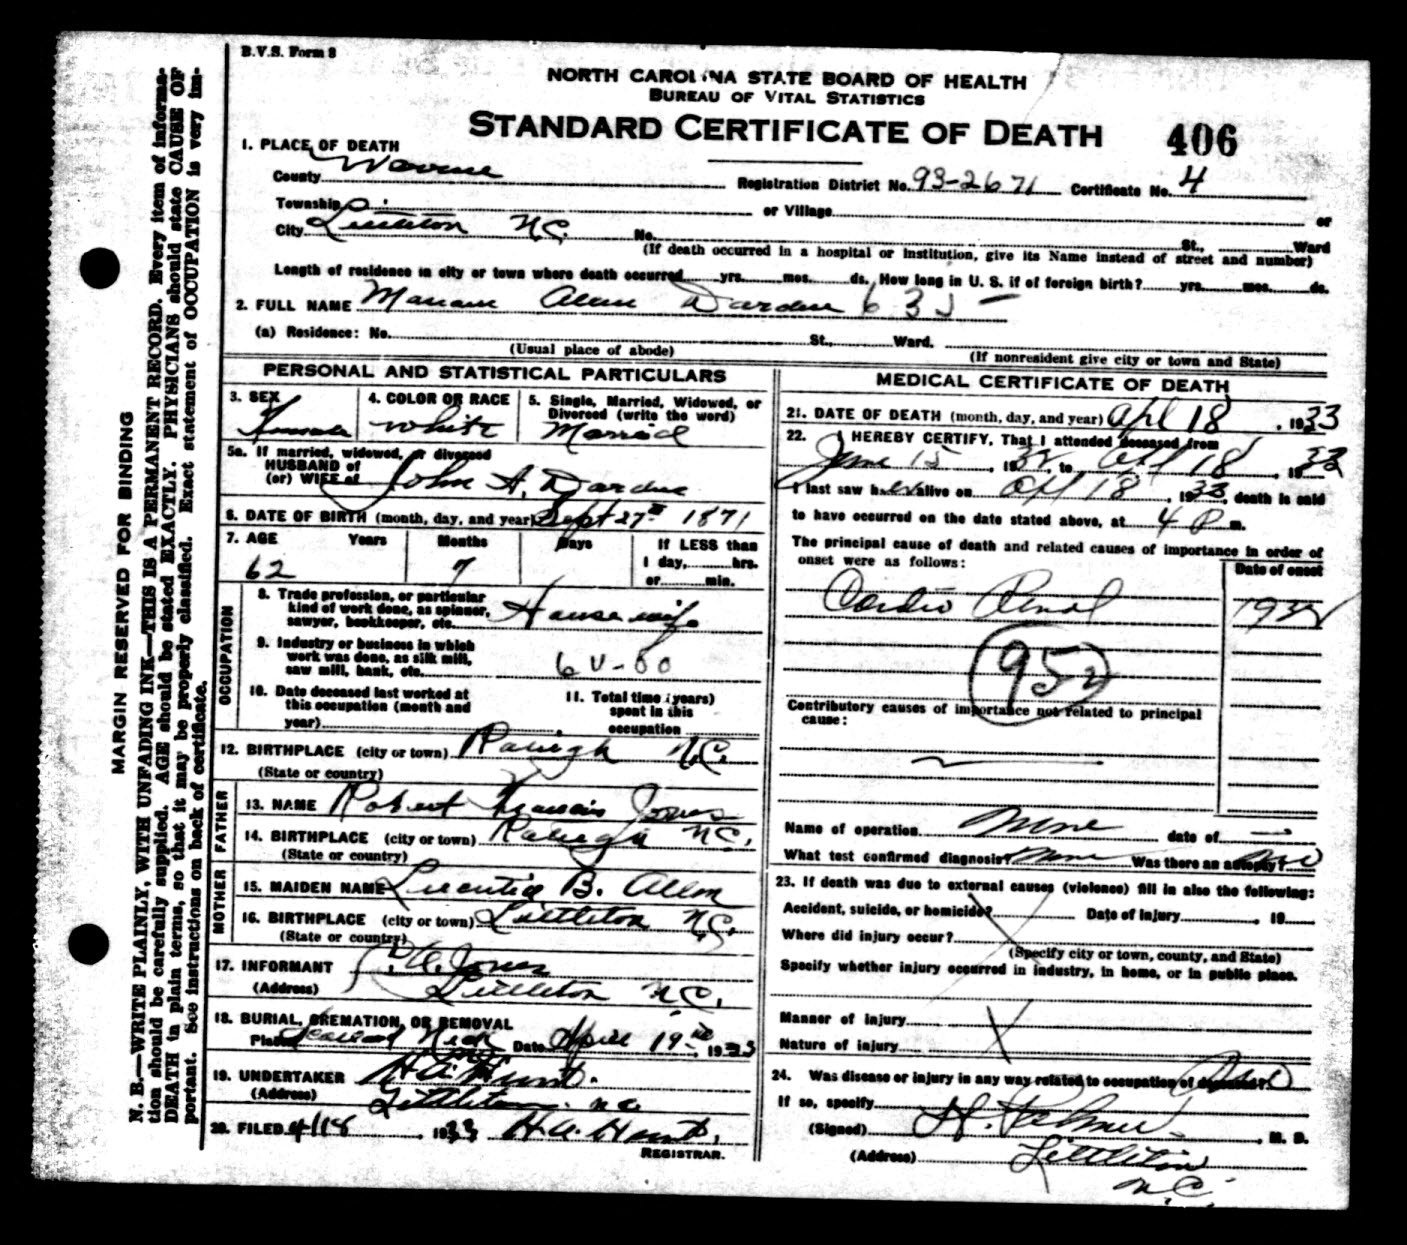 B.V.S. Form 8
NORTH CAROLINA STATE BOARD OF HEALTH
BUREAU OF VITAL STATISTICS
STANDARD CERTIFICATE OF DEATH 406
1. PLACE OF DEATH
County Warren Registration District No. 93-2671 Certificate No. 4
Township or Village or
City Littleton N.C. No. St., Ward
(If death occurred in a hospital or institution, give its Name instead of street and number)
Length of residence in city or town where death occurred yrs. mos. ds. How long in U. S. if of foreign birth? yrs. mos. ds.
2. FULL NAME Allen Darden 635 -
(a) Residence: No. St., Ward.
(Usual place of abode) (If nonresident give city or town and State)
PERSONAL AND STATISTICAL PARTICULARS
3. SEX 4. COLOR OR RACE 5. Single, Married, Widowed, or Divorced (write the word)
Female White Married
5a. If married, widowed, or divorced
HUSBAND of
(or) WIFE of John A. Darden
6. DATE OF BIRTH (month, day, and year) Sept 27th 1871
7. AGE Years Months Days If LESS than
1 day, hrs.
62 7 or min.
OCCUPATION
8. Trade profession, or particular
kind of work done, as spinner,
sawyer, bookkeeper, etc. House wife
9. Industry or business in which
work was done, as silk mill,
saw mill, bank, etc.
10. Date deceased last worked at
this occupation (month and
year)
11. Total time (years)
spent in this
occupation
12. BIRTHPLACE (city or town) Raleigh N.C.
(State or country)
FATHER
13. NAME Robert Francis Jones
14. BIRTHPLACE (city or town) Raleigh N.C.
(State or country)
MOTHER
15. MAIDEN NAME B. Allen
16. BIRTHPLACE (city or town) Littleton N.C.
(State or country)
17. INFORMANT Jones
(Address) Littleton N.C.
18. BURIAL, CREMATION, OR REMOVAL
Place Scotland Neck Date April 19th, 1933
19. UNDERTAKER H.A. Hunt.
(Address) Littleton N.C.
20. FILED 4/18, 1933 H.A. Hunt.
REGISTRAR.
MEDICAL CERTIFICATE OF DEATH
21. DATE OF DEATH (month, day, and year) Apl 18, 1933
22. I HEREBY CERTIFY, That I attended deceased from
June 15, 1932, to Apl 18, 1933
I last saw her alive on Apl 18, 1933, death is said
to have occurred on the date stated above, at 4 P m.
The principal cause of death and related causes of importance in order of
onset were as follows: Date of onset
Cardio Renal 1932
952
Contributory causes of importance not related to principal
cause:
Name of operation None date of —
What test confirmed diagnosis? None Was there an autopsy? No
23. If death was due to external causes (violence) fill in also the following:
Accident, suicide, or homicide? Date of injury, 19
Where did injury occur?
(Specify city or town, county, and State)
Specify whether injury occurred in industry, in home, or in public place.
Manner of injury
Nature of injury
24. Was disease or injury in any way related to occupation of deceased? No
If so, specify
(Signed), M. D.
(Address) Littleton
N.C.
MARGIN RESERVED FOR BINDING
N. B.—WRITE PLAINLY, WITH UNFADING INK—THIS IS A PERMANENT RECORD. Every item of informa-
tion should be carefully supplied. AGE should be stated EXACTLY. PHYSICIANS should state CAUSE OF
DEATH in plain terms, so that it may be properly classified. Exact statement of OCCUPATION is very im-
portant. See instructions on back of certificate.